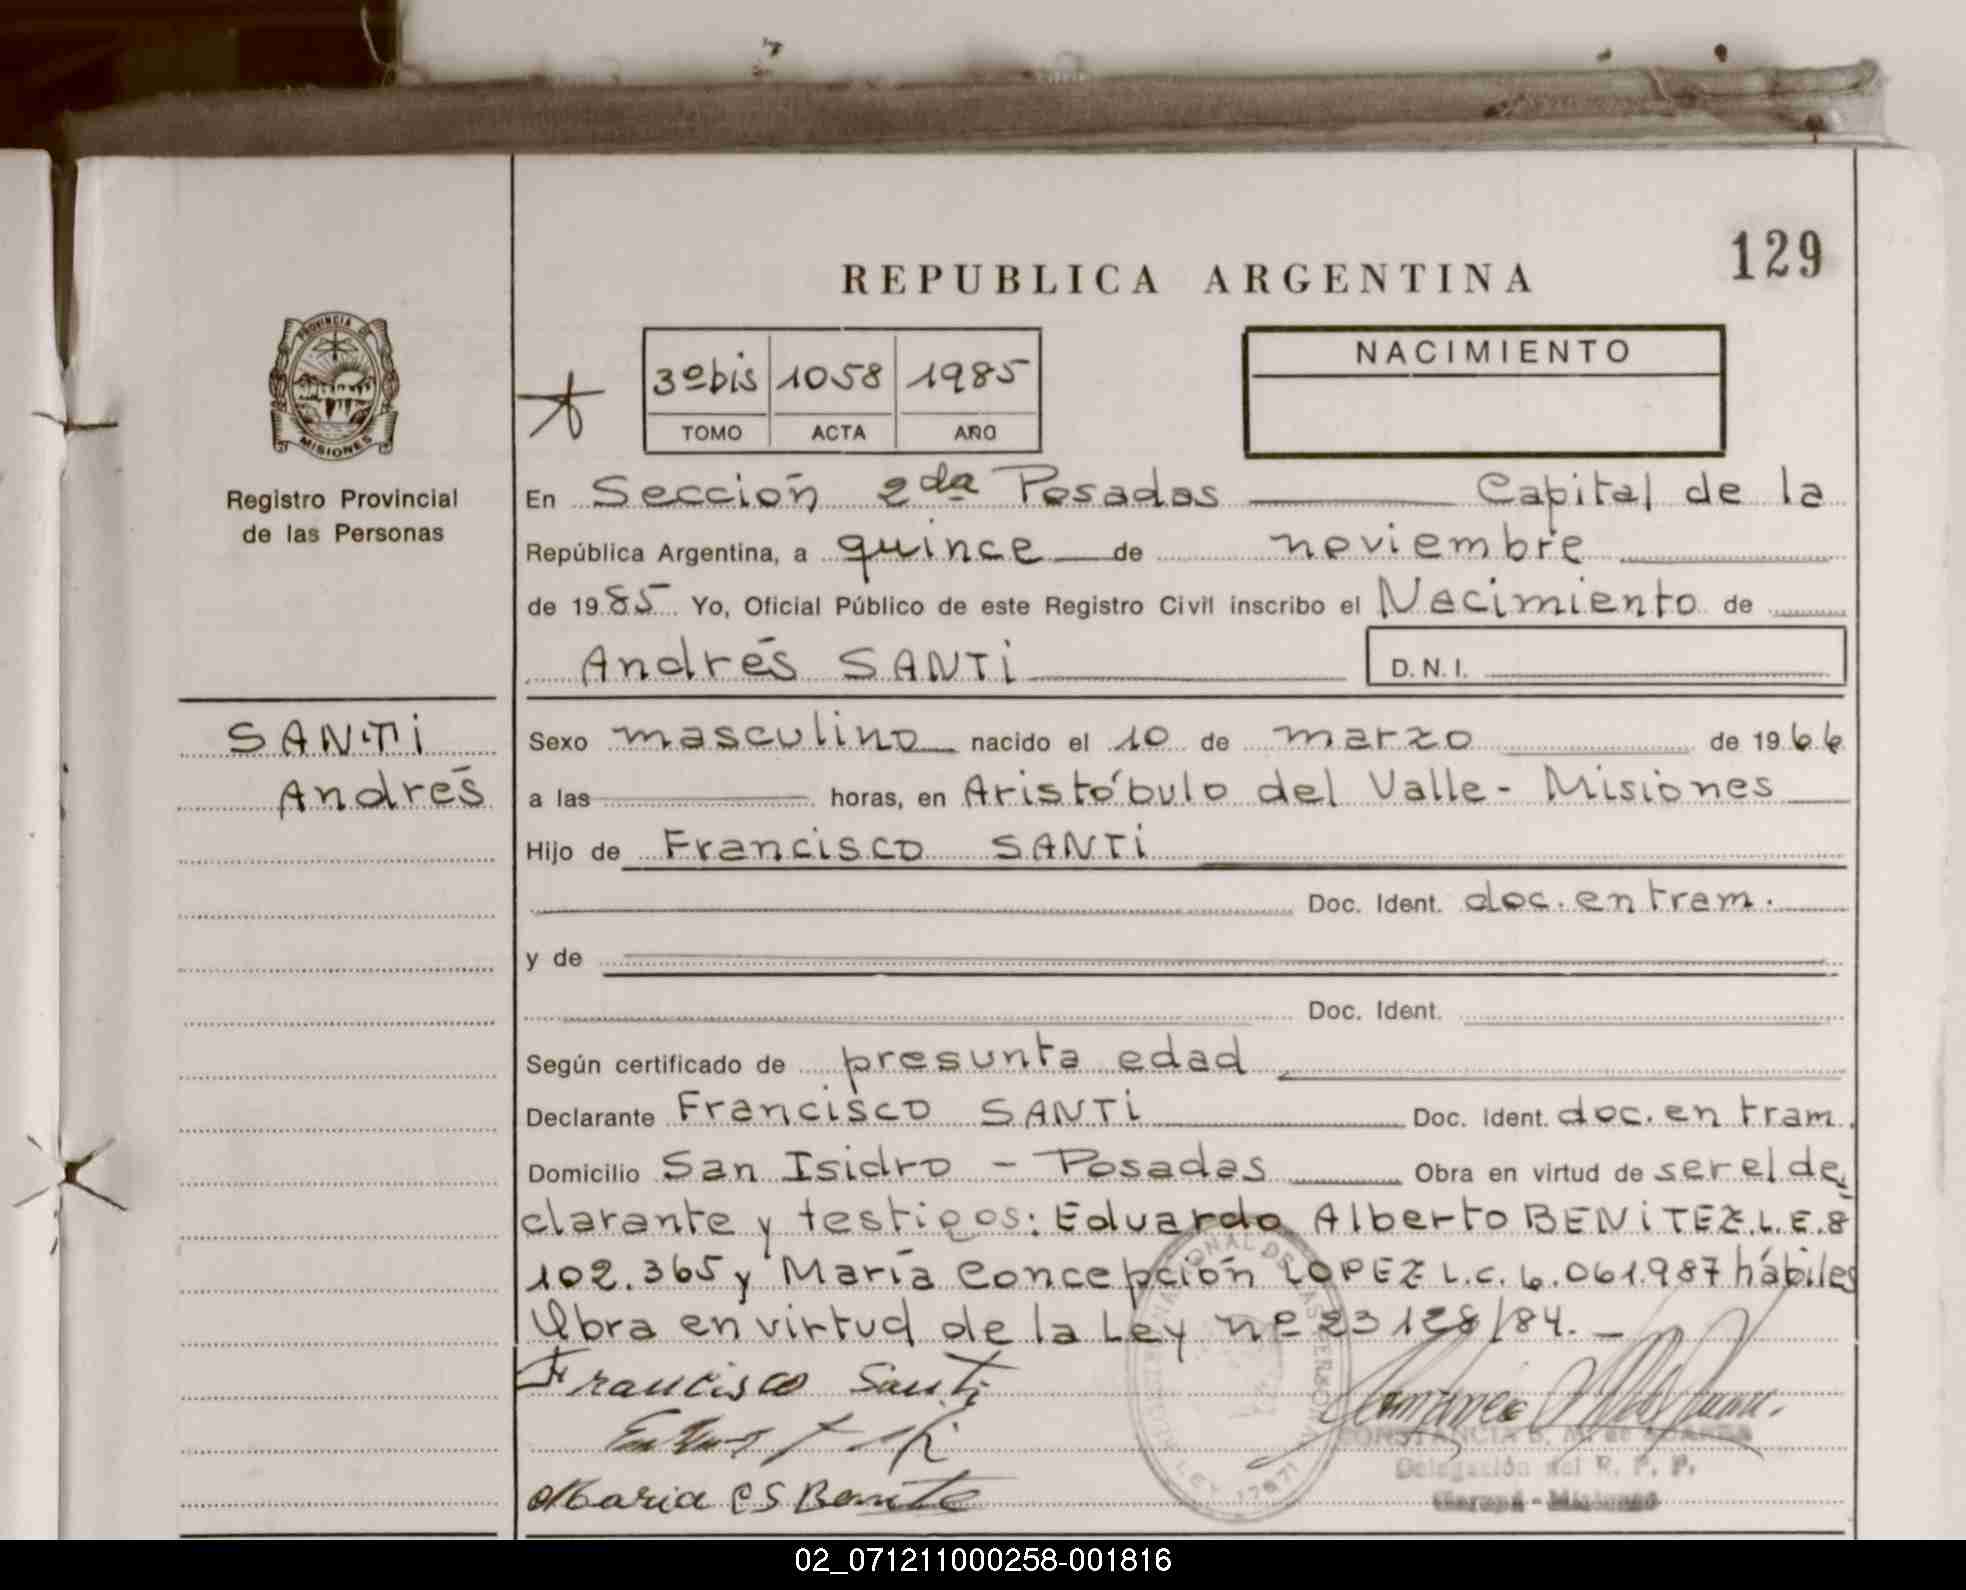 129
REPUBLICA ARGENTINA
PROVINCIA DE
MISIONES
Registro Provincial
de las Personas
3º bis 1058 1985
TOMO ACTA AÑO
NACIMIENTO
En Sección 2da Posadas Capital de la
República Argentina, a quince de noviembre
de 1985 Yo, Oficial Público de este Registro Civil inscribo el Nacimiento de
Andrés SANTI D.N.I.
SANTI
Andrés
Sexo masculino nacido el 10 de marzo de 1966
a las horas, en Aristóbulo del Valle - Misiones
Hijo de Francisco SANTI
Doc. Ident. doc. en tram.
y de
Doc. Ident.
Según certificado de presunta edad
Declarante Francisco SANTI Doc. Ident. doc. en tram.
Domicilio San Isidro - Posadas Obra en virtud de ser el de
clarante y testigos: Eduardo Alberto BENITEZ L.E. 8
102.365 y María Concepción LOPEZ L.C. 6.061.987 hábiles
Obra en virtud de la Ley nº 23128/84.
Francisco Santi
Maria
Delegación del R. P. P.
Misiones
02_071211000258-001816